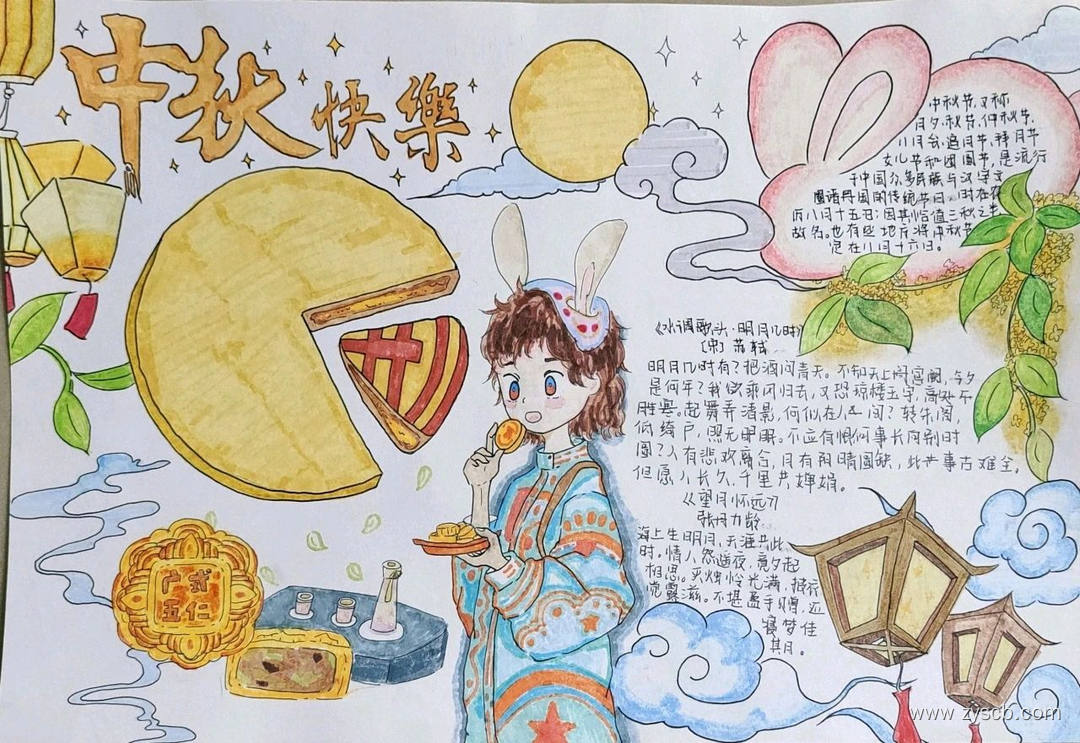 中秋快樂
中秋节，又称
月夕、秋节、仲秋节、
八月会、追月节、拜月节
女儿节和团圆节，是流行
于中国众多民族与汉字文
圈诸邦国的传统节日，时在农
历八月十五日；因其恰值三秋之半
故名。也有些地方将中秋节
定在八月十六日。
《水调歌头·明月几时》
[宋] 苏轼
明月几时有？把酒问青天。不知天上阙宫阙，今夕
是何年？我欲乘风归去，又恐琼楼玉宇，高处不
胜寒。起舞弄清影，何似在人间？转朱阁，
低绮户，照无眠。不应有恨何事长向别时
圆？人有悲欢离合，月有阴晴圆缺，此事古难全，
但愿人长久，千里共婵娟。
《望月怀远》
张九龄
海上生明月，天涯共此
时，情人怨遥夜，竟夕起
相思。灭烛怜光满，披衣
觉露滋。不堪盈手赠，还
寝梦佳
期。
广式
五仁
www.zyscb.com